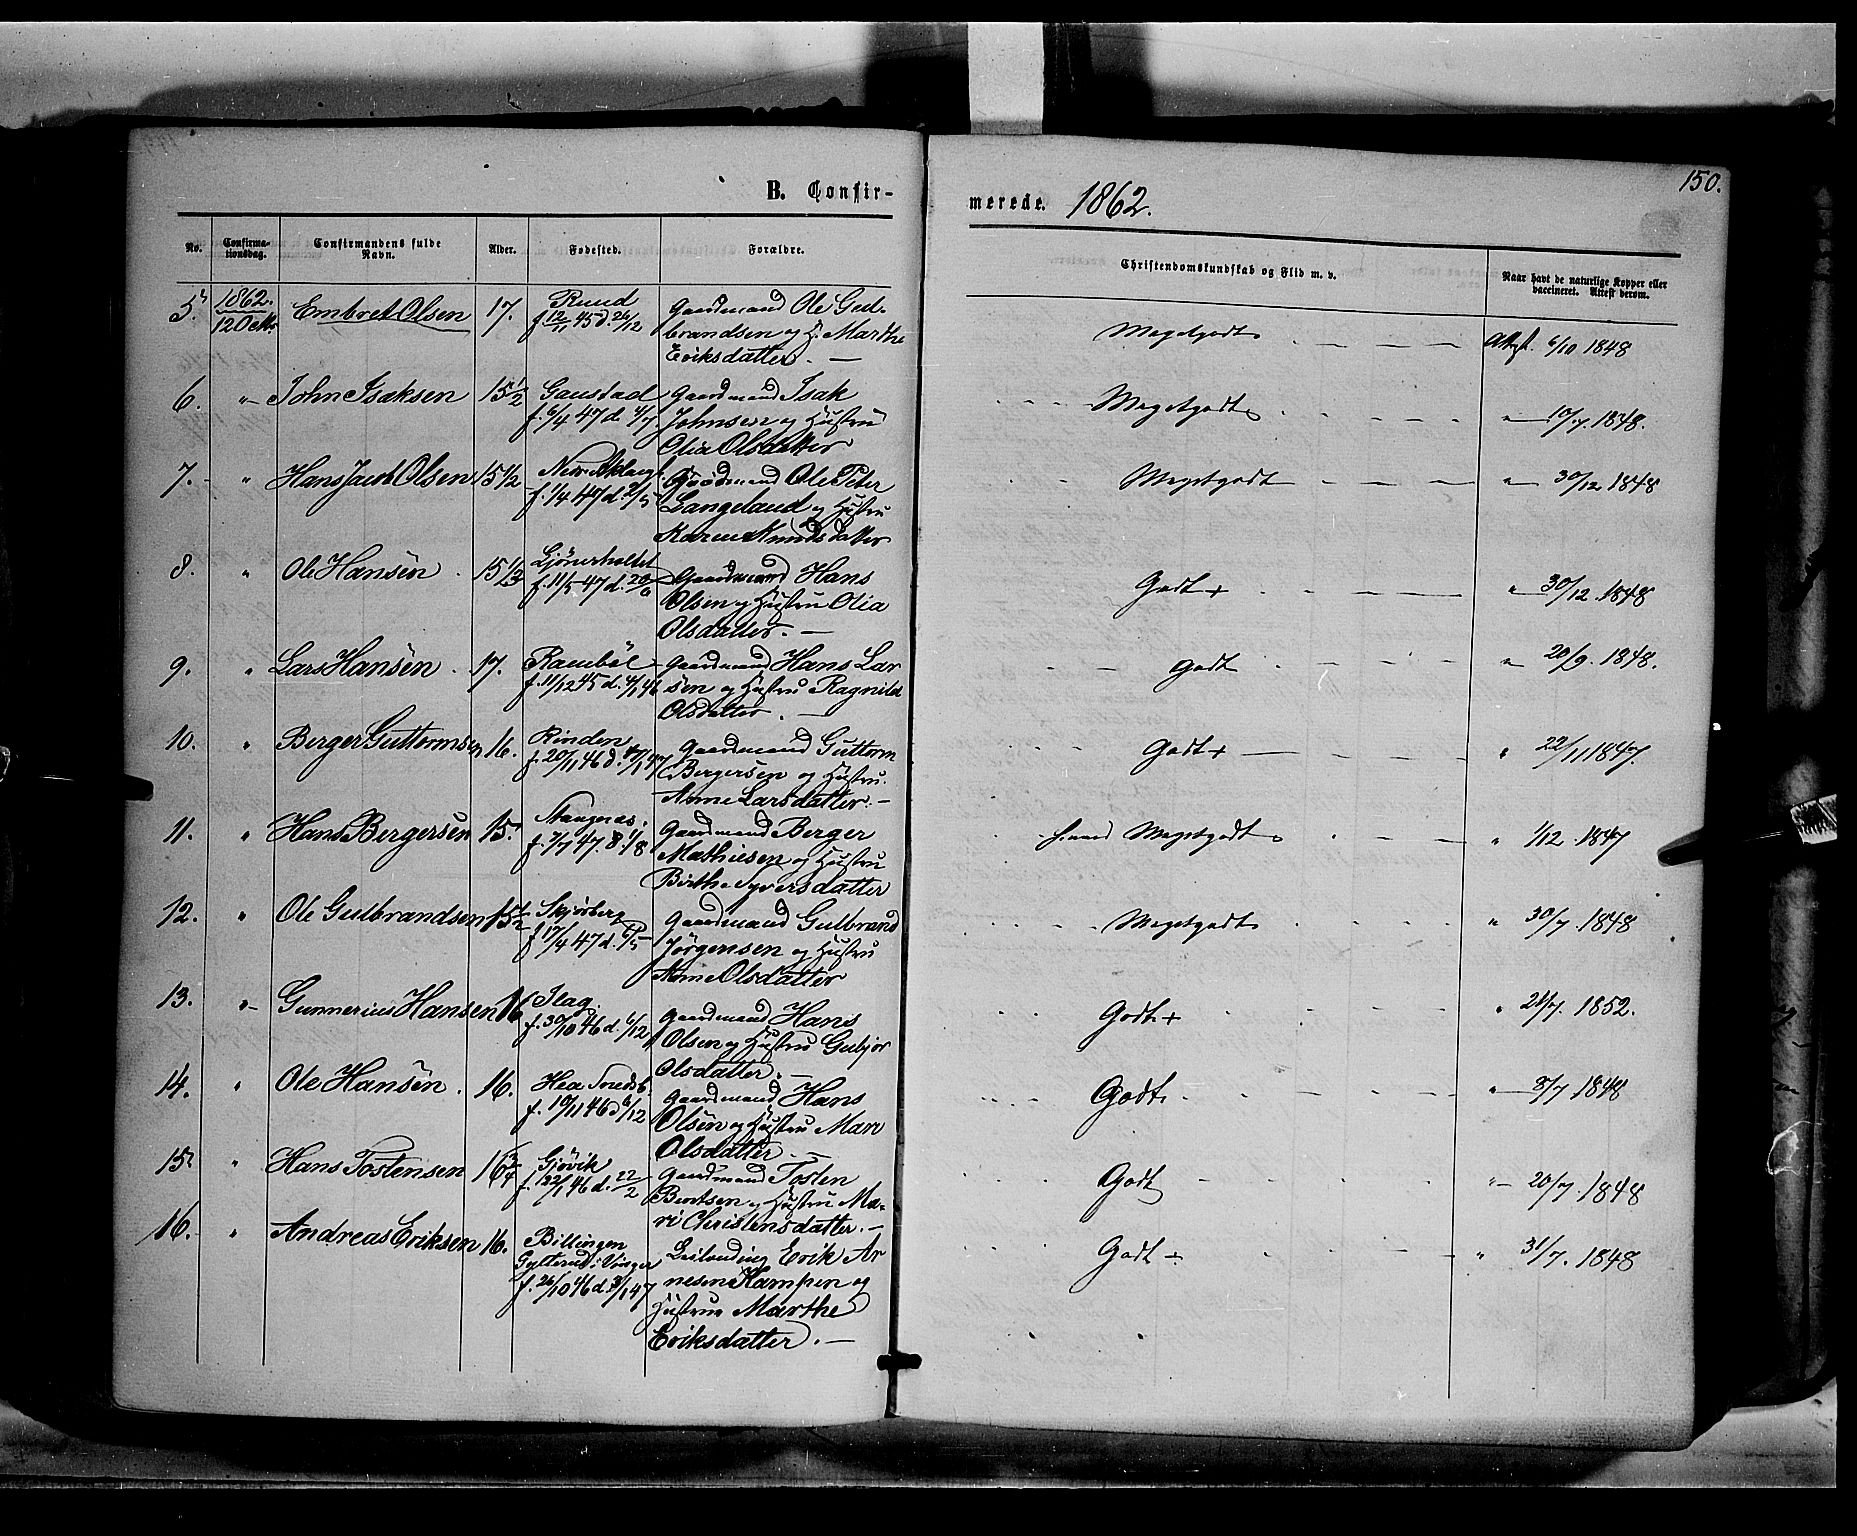 150.
B. Confir-
merede. 1862.
No. Confirma-tionsdag. Confirmandens fulde Navn. Alder. Fødested. Forældre. Christendomskundskab og Flid m. v. Naar havt de naturlige Kopper eller vaccineret. Attest derom.
5. 1862. 12 Octbr Embret Olsen 17. Ruud Gaardmand Ole Gul-
f 12/11 45 d. 26/12 brandsen og H. Marthe Megetgodt Attest. 6/10 1848
Eriksdatter. —
6. " John Isaksen 15 1/2 Gaustad Gaardmand Isak
f. 6/1 47 d. 4/7 Johnsen og Hustru Megetgodt " 10/7. 1848.
Olia Olsdatter
7. " Hans Jacob Olsen 15 1/2 Gaardmand Ole Peter
f. 1/4 47 d. 2/5 Langeland og Hustru Megetgodt " 30/12 1848
Karen Knudsdatter
8. " Ole Hansen 15 1/2 Gjönerholtet Gaardmand Hans
f. 11/5 47 d. 20/6 Olsen og Hustru Olia Godt + " 30/12. 1848
Olsdatter. —
9. " Lars Hansen 17. Raubøl Gaardmand Hans Lar
f. 11/12 45 d. 4/1 46 sen og Hustru Ragnild Godt " 20/9. 1848.
Olsdatter. —
10. " Berger Guttormsen 16. Rinden Gaardmand Guttorm
f. 20/11 46 d. 1/1 47 Bergersen og Hustru Godt + " 22/11 1847.
Anne Larsdatter. —
11. " Hans Bergersen 15. Stangenæs. Gaardmand Berger
f. 7/7 47. d. 1/8 Mathiesen og Hustru Megetgodt " 1/12. 1847
Birthe Syversdatter
12. " Ole Gulbrandsen 15 1/2 Skjørberg Gaardmand Gulbrand
f 17/4 47 d. 6/5 Jörgensen og Hustru Megetgodt " 30/7. 1848
Anne Olsdatter
13. " Gunnerius Hansen 16 Slag. Gaardmand Hans
f. 30/10 46 d. 6/12 Olsen og Hustru Gubjør Godt + " 21/7. 1852.
Olsdatter. —
14. " Ole Hansen. 16. Gaardmand Hans
f. 19/11 46 d 6/12 Olsen og Hustru Mari Godt. " 8/7 1848
Olsdatter. —
15 " Hans Tostensen 16 3/4 Gjövik Gaardmand Tosten
f. 22/1 46 d. 22/2 Berntsen og Hustru Ma- Godt " 20/7. 1848
ri Christensdatter. —
16. " Andreas Eriksen 16. Billingen Leilending Erik Ar
i Vinger nesen Kampen og Godt + " 31/7. 1848
f. 26/10 46 d. 3/1 47 Hustrue Marthe
Eriksdatter. —